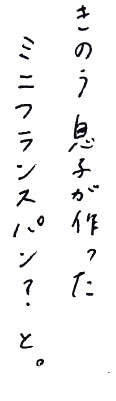 きのう息子が作った
ミニフランスパン？と。